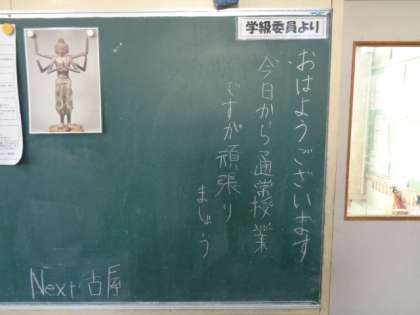 学級委員より
おはようございます
今日から通常授業
ですが頑張り
ましょう
Next 古屋